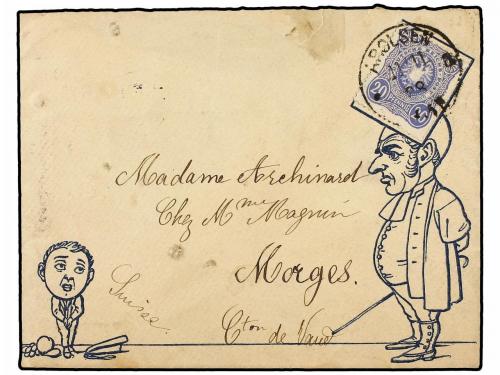 AROLSEN
20 PFENNIG 20
Madame Archinard
Chez Mme Magnin
Morges.
Suisse.
Cton de Vaud